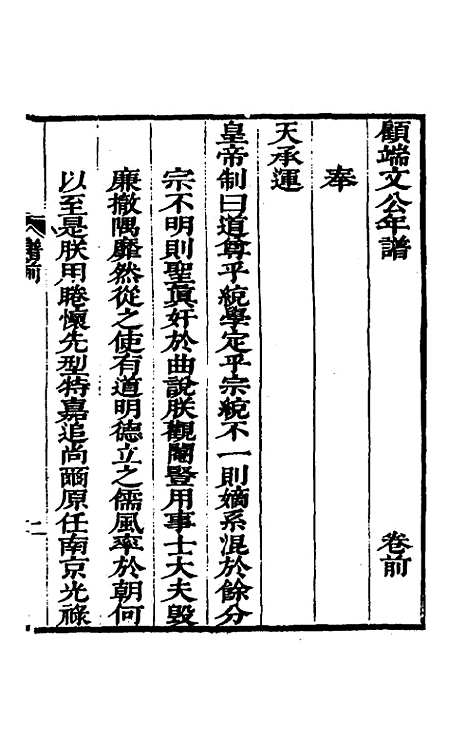 顧端文公年譜　卷前
奉
天承運
皇帝制曰道尊乎統學定乎宗統不一則嫡系混於餘分
宗不明則聖真奸於曲說朕觀閹豎用事士大夫毀
廉撤隅靡然從之使有道明德立之儒風率於朝何
以至是朕用睠懷先型特嘉追尚爾原任南京光祿
譜前